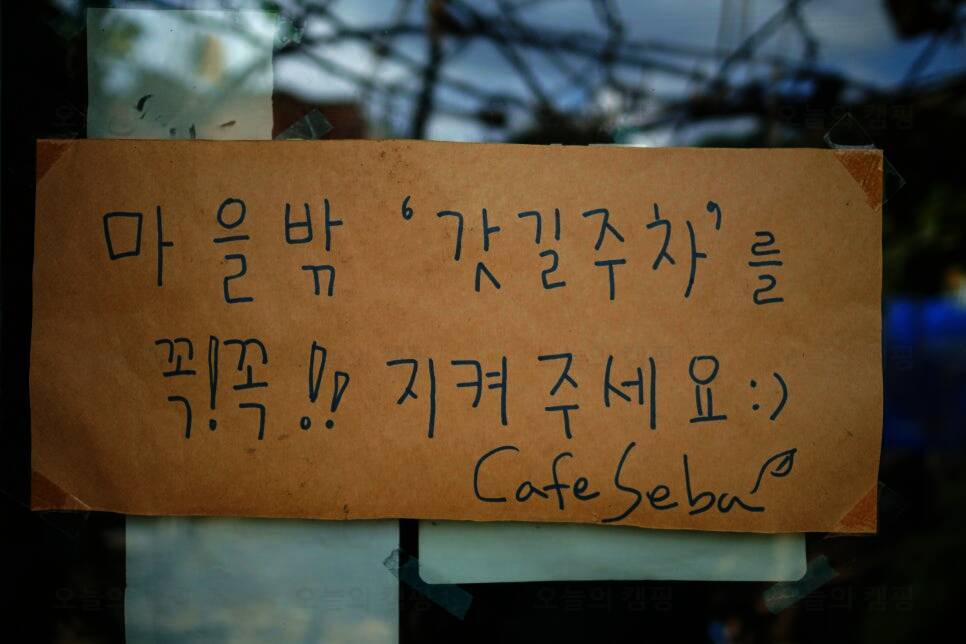 마을밖 '갓길주차'를
꼭!꼭!! 지켜주세요:)
Cafe Seba
오늘의 캠핑
오늘의 캠핑
오늘의 캠핑
오늘의 캠핑